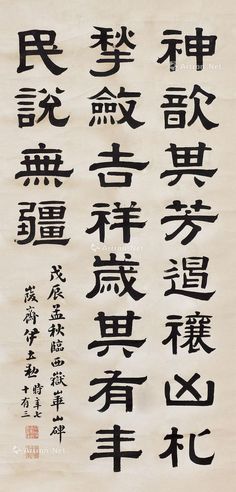 神歆其芳遏禳凶札
揫斂吉祥歲其有年
民說無疆
戊辰孟秋臨西嶽華山碑
峻齋伊立勳時年七
十有三